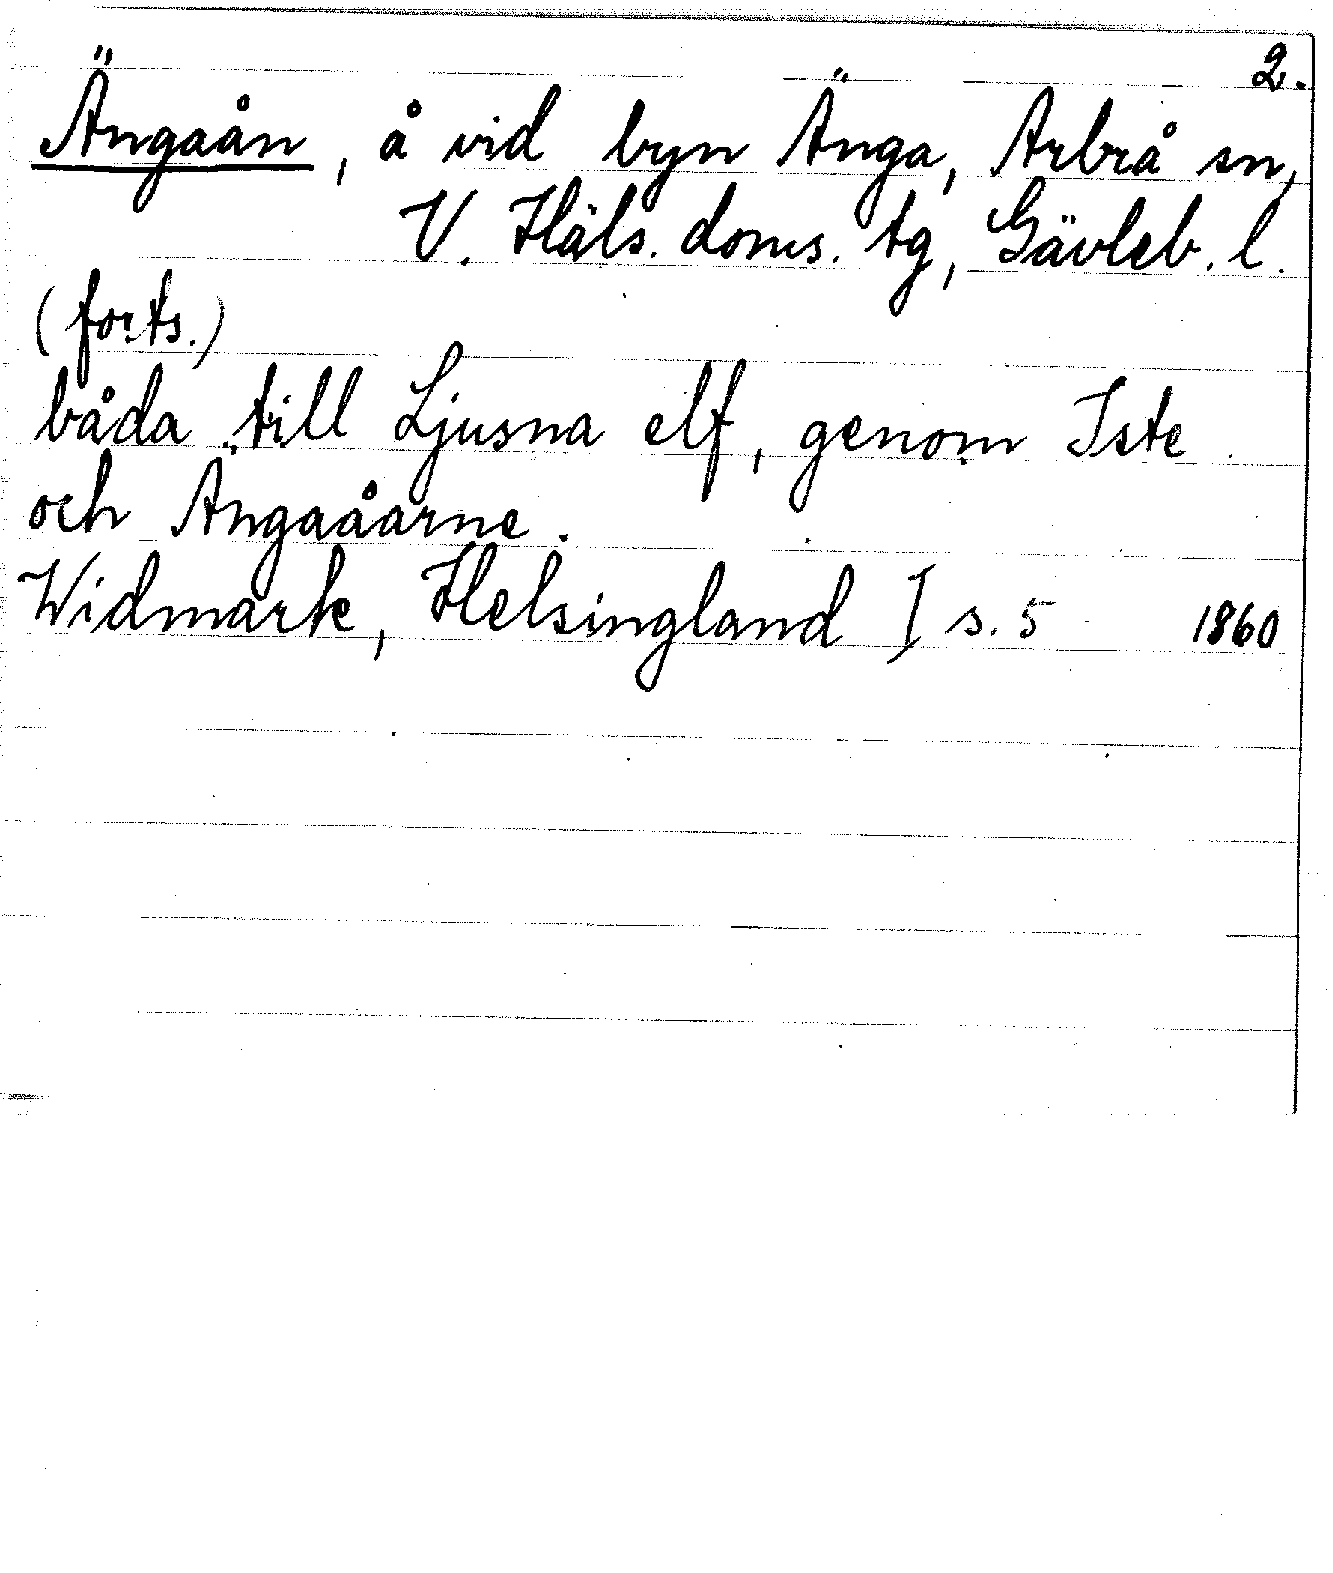 2.
Ängaån, å vid byn Änga, Arbrå sn,
V. Häls. doms. tg, Gävleb. l.
(forts.)
båda till Ljusna elf, genom Iste
och Ängaåarne.
Widmark, Helsingland I s. 5 1860